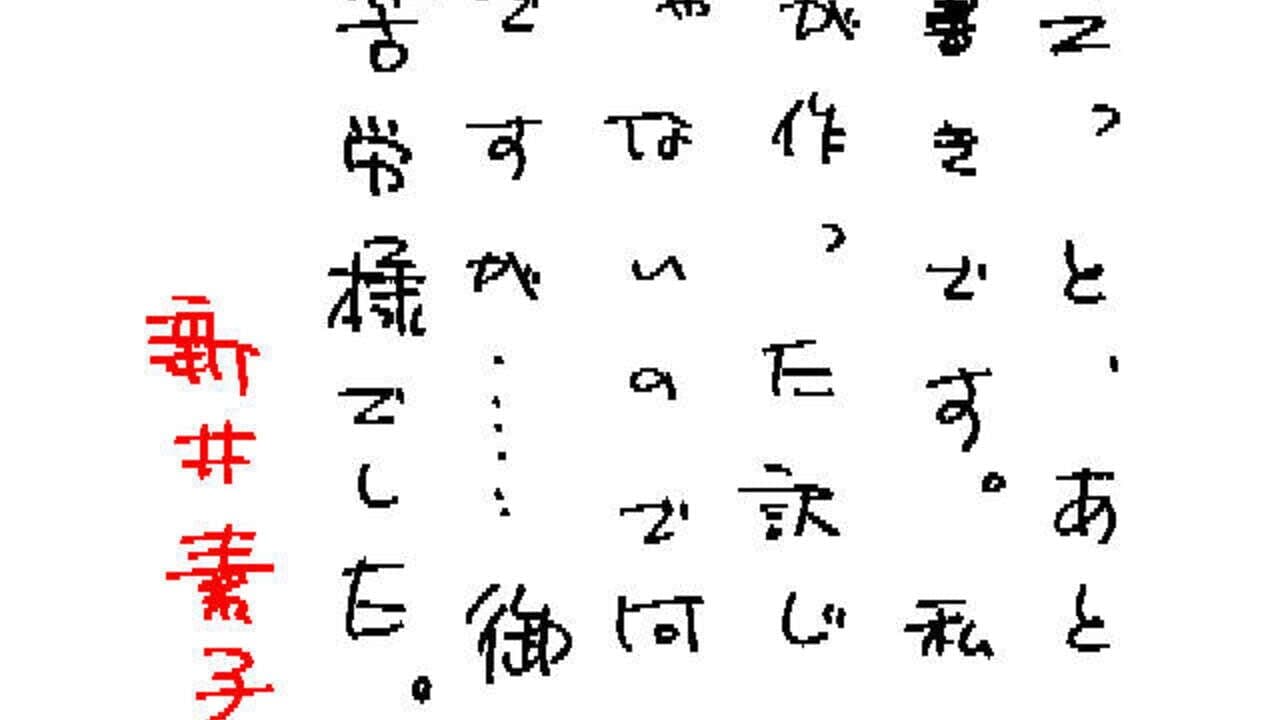 てっと、あと
書きです。私
が作った訳じ
ゃないので何
ですが……御
苦労様でした。
新井素子